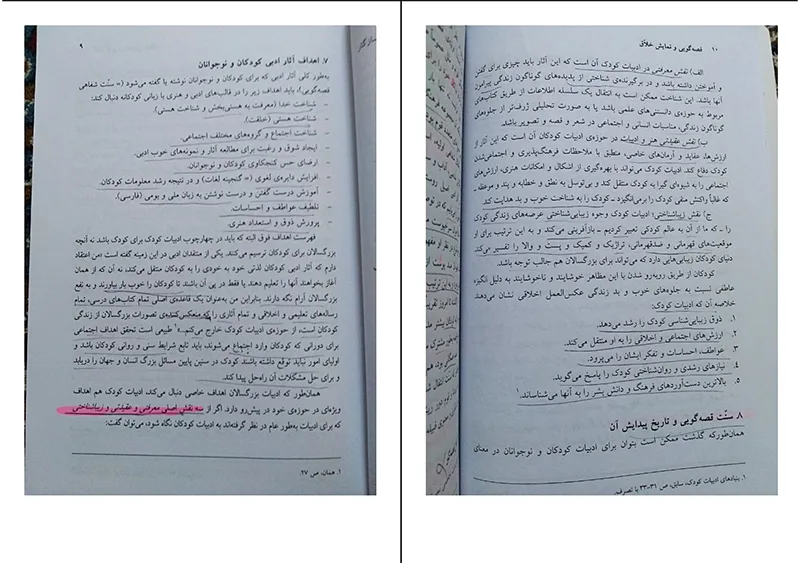 ۹
۷. اهداف آثار ادبی کودکان و نوجوانان
به‌طور کلی آثار ادبی که برای کودکان و نوجوانان نوشته یا گفته می‌شود (= سنّت شفاهی
قصه‌گویی)، باید اهداف زیر را در قالب‌های ادبی و هنری با زبانی کودکانه دنبال کند:
- شناخت خدا (معرفت به هستی‌بخش و شناخت هستی).
- شناخت هستی (خلقت).
- شناخت اجتماع و گروه‌های مختلف اجتماعی.
- ایجاد شوق و رغبت برای مطالعه آثار و نمونه‌های خوب ادبی.
- ارضای حس کنجکاوی کودکان و نوجوانان.
- افزایش دایره‌ی لغوی (= گنجینه لغات) و در نتیجه رشد معلومات کودکان.
- آموزش درست گفتن و درست نوشتن به زبان ملی و بومی (فارسی).
- تلطیف عواطف و احساسات.
- پرورش ذوق و استعداد هنری.
فهرست اهداف فوق البته که باید در چهارچوب ادبیات کودک برای کودک باشد نه آنچه
بزرگسالان برای کودکان ترسیم می‌کنند. یکی از منتقدان ادبی در این زمینه گفته است: «من اعتقاد
دارم که آثار ادبی کودکان لذتی خود به خودی را به کودکان منتقل می‌کند، نه آن که از همان
آغاز بخواهند آنها را تعلیم دهند یا فقط در پی آن باشند تا کودکان را خوب بار بیاورند و به نفع
بزرگسالان آرام نگه دارند. بنابراین من به‌عنوان یک قاعده‌ی اصلی تمام کتاب‌های درسی، تمام
رساله‌های تعلیمی و اخلاقی و تمام آثاری را که منعکس‌کننده‌ی تصورات بزرگسالان از زندگی
کودکان است، از حوزه‌ی ادبیات کودک خارج می‌کنم.»۱ طبیعی است تحقق اهداف اجتماعی
برای دورانی که کودکان وارد اجتماع می‌شوند، باید تابع شرایط سنی و روانی کودکان باشد و
اولیای امور نباید توقع داشته باشند کودک در سنین پایین مسائل بزرگ انسان و جهان را دریابد
و برای حل مشکلات آن راه‌حل پیدا کند.
همان‌طور که ادبیات بزرگسالان اهداف خاصی دنبال می‌کند، ادبیات کودک هم اهداف
ویژه‌ای در حوزه‌ی خود در پیش‌رو دارد. اگر از سه نقش اصلی معرفتی و عقیدتی و زیباشناختی
که برای ادبیات به‌طور عام در نظر گرفته‌اند به ادبیات کودکان نگاه شود، می‌توان گفت:
۱. همان، ص ۲۷.
۱۰ قصه‌گویی و نمایش خلاّق
الف) نقش معرفتی در ادبیات کودک آن است که این آثار باید چیزی برای گفتن
و آموختن داشته باشد و در برگیرنده‌ی شناختی از پدیده‌های گوناگون زندگی پیرامون
آنها باشد. این شناخت ممکن است به انتقال یک سلسله اطلاعات از طریق کتاب‌های
مربوط به حوزه‌ی دانستنی‌های علمی باشد یا به صورت تحلیلی ژرف‌تر از جلوه‌های
گوناگون زندگی، مناسبات انسانی و اجتماعی در شعر و قصه و تصویر باشد.
ب) نقش عقیدتی هنر و ادبیات در حوزه‌ی ادبیات کودکان آن است که این آثار از
ارزش‌ها، عقاید و آرمان‌های خاصی، منطبق با ملاحظات فرهنگ‌پذیری و اجتماعی‌شدن
کودک دفاع کند. ادبیات کودک می‌تواند با بهره‌گیری از اشکال و امکانات هنری، ارزش‌های
اجتماعی را به شیوه‌ای گیرا به کودک منتقل کند و بی‌توسل به نطق و خطابه و پند و موعظه ـ
که غالباً واکنش منفی کودک را برمی‌انگیزد ـ کودک را به شناخت خوب و بد هدایت کند.
ج) نقش زیباشناختی؛ ادبیات کودک وجوه زیبایی‌شناختی عرصه‌های زندگی کودک
را ـ که ما از آن به عالم کودکی تعبیر کردیم ـ بازآفرینی می‌کند و به این ترتیب برای او
موقعیت‌های قهرمانی و ضدقهرمانی، تراژیک و کمیک و پست و والا را تفسیر می‌کند
دنیای کودکان زیبایی‌هایی دارد که می‌تواند برای بزرگسالان هم جالب توجه باشد.
کودکان از طریق روبه‌رو شدن با این مظاهر خوشایند و ناخوشایند به دلیل انگیزه
عاطفی نسبت به جلوه‌های خوب و بد زندگی عکس‌العمل اخلاقی نشان می‌دهند
خلاصه آن که ادبیات کودک:
۱. ذوق زیبایی‌شناسی کودک را رشد می‌دهد.
۲. ارزش‌های اجتماعی و اخلاقی را به او منتقل می‌کند.
۳. عواطف، احساسات و تفکر ایشان را می‌پرورد.
۴. نیازهای رشدی و روان‌شناختی کودک را پاسخ می‌گوید.
۵. بالاترین دست‌آوردهای فرهنگ و دانش بشر را به آنها می‌شناساند.۱
۸. سنّت قصه‌گویی و تاریخ پیدایش آن
همان‌طورکه گذشت ممکن است بتوان برای ادبیات کودکان و نوجوانان در معنای
۱. بنیادهای ادبیات کودک، سابق، ص ۳۱-۳۳ با تصرف.